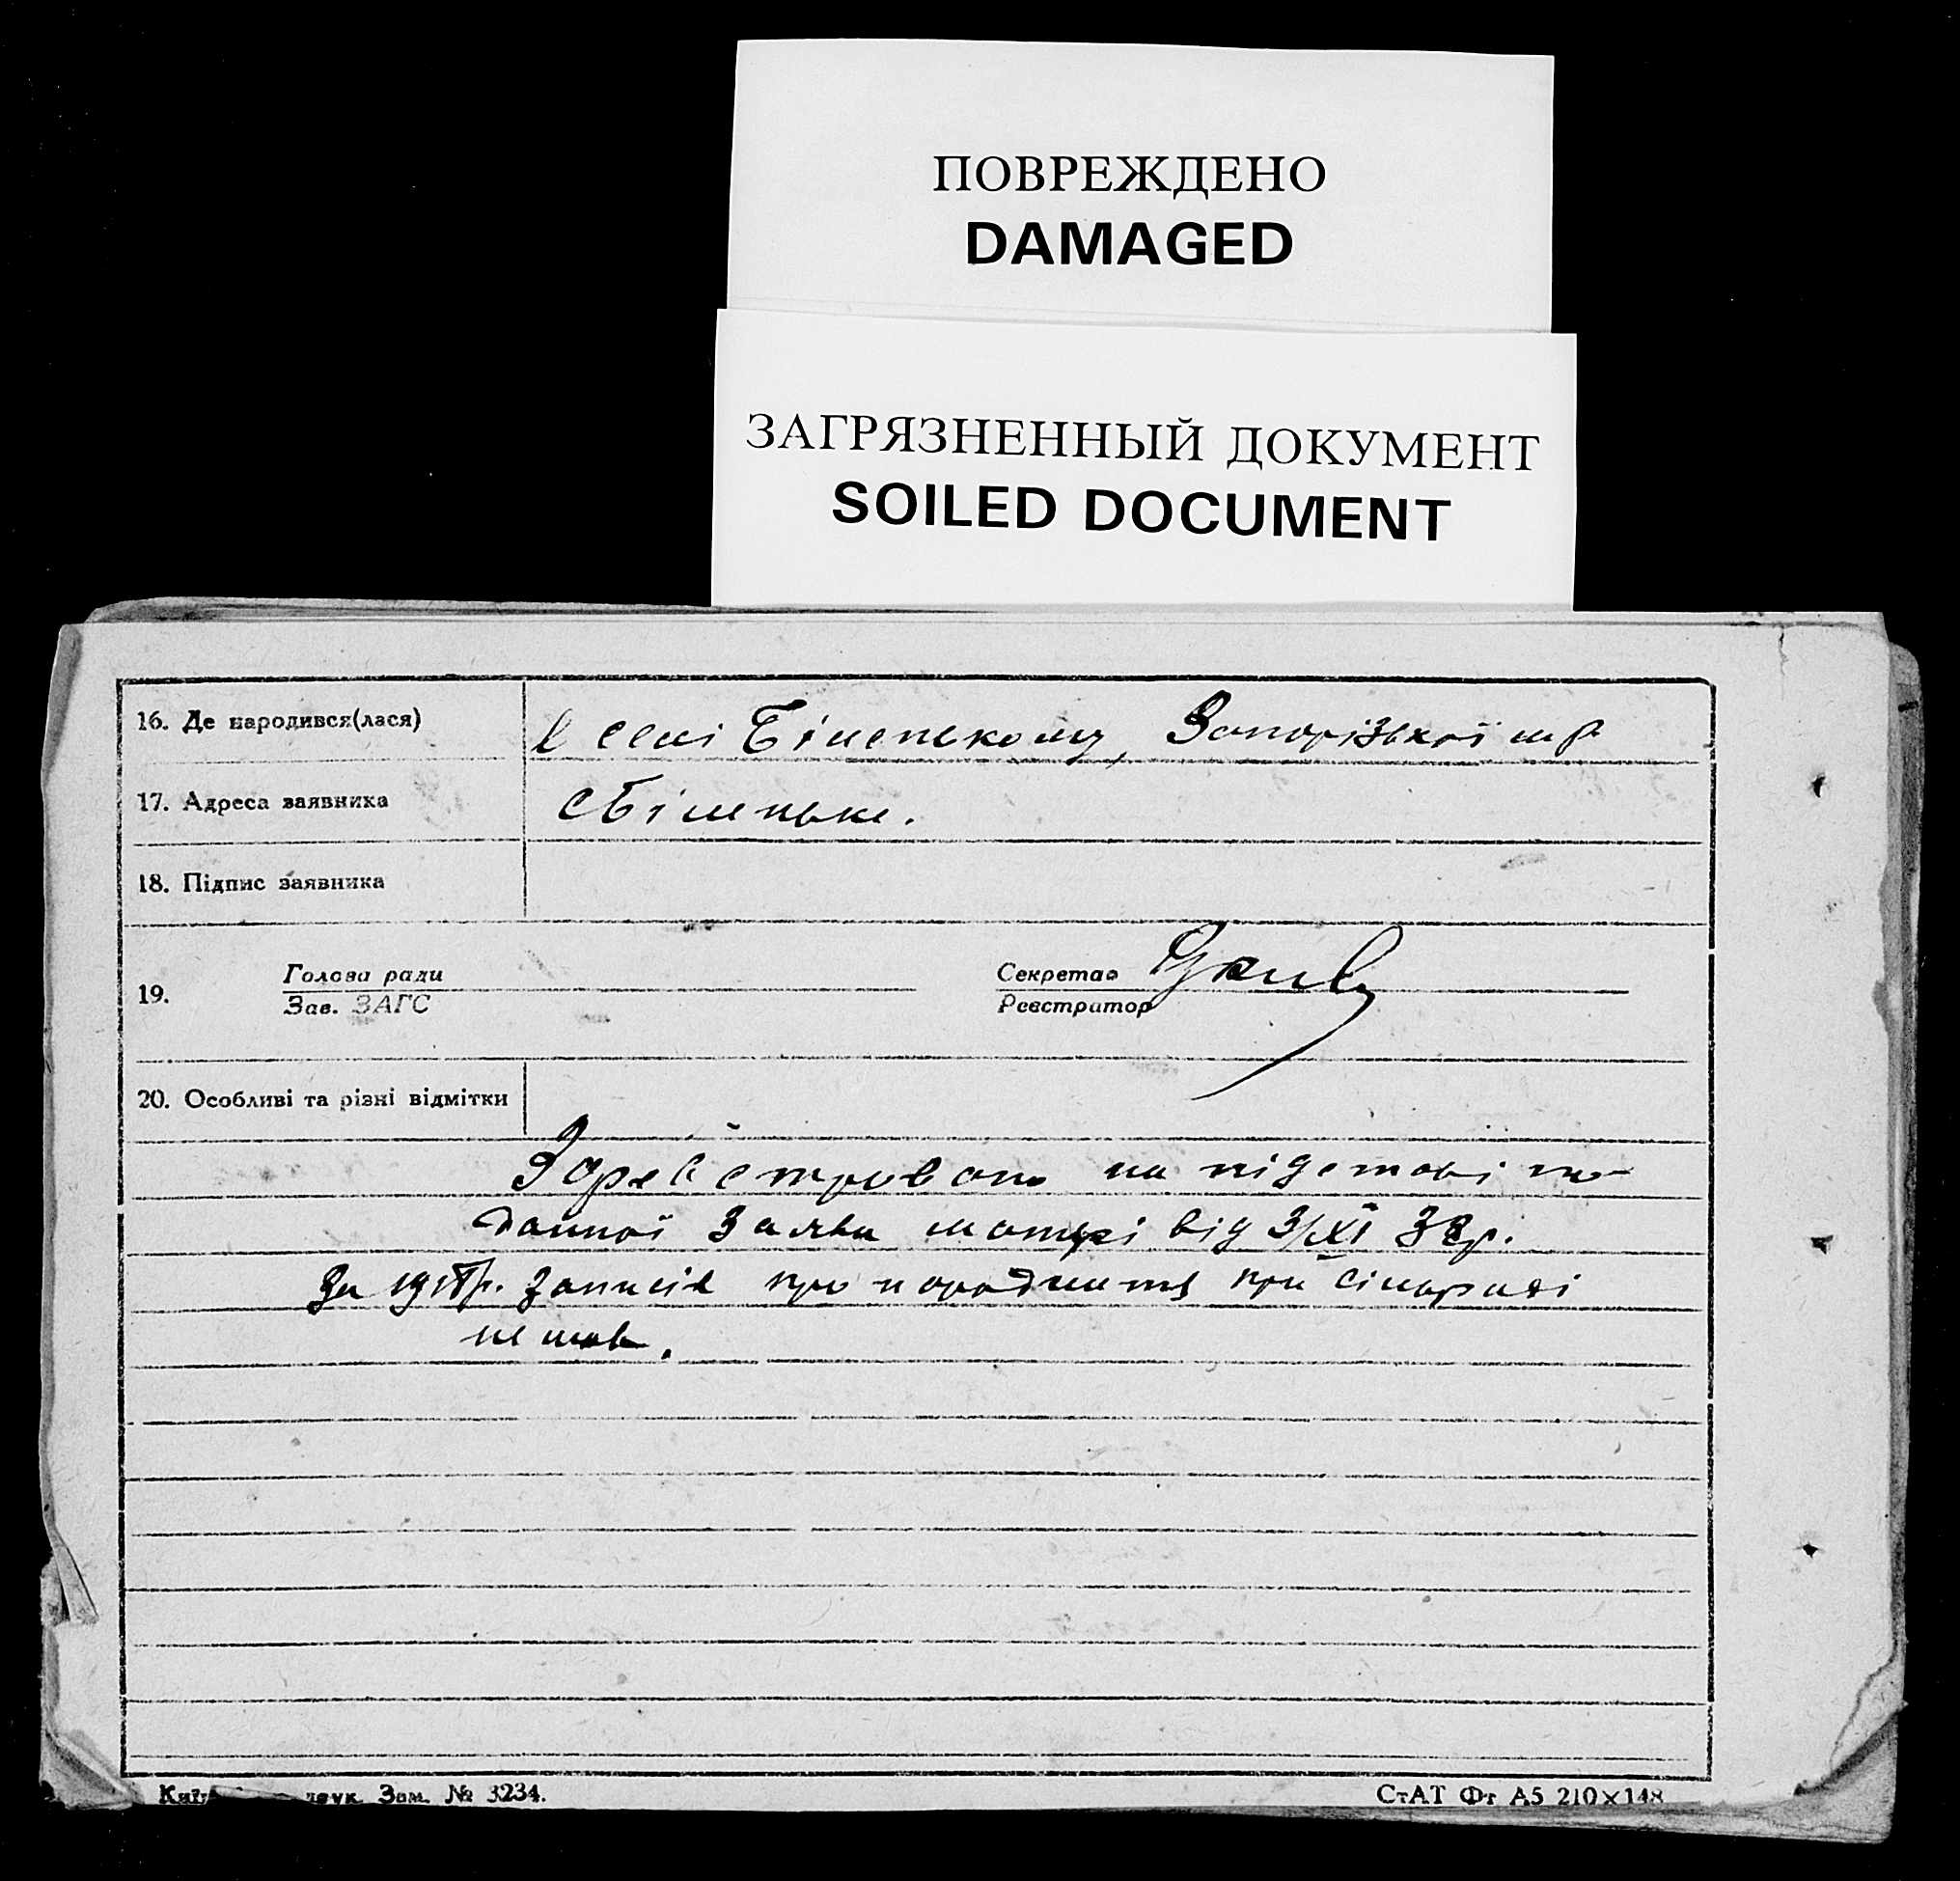 ПОВРЕЖДЕНО
DAMAGED
ЗАГРЯЗНЕННЫЙ ДОКУМЕНТ
SOILED DOCUMENT
16. Де народився(лася)
в селі Біленькому, Запорізької
17. Адреса заявника
с Біленьке.
18. Підпис заявника
19.
Голова ради
Зав. ЗАГС
Секретар
Реєстратор
20. Особливі та різні відмітки
Зареєстровано на підставі по-
даної заяви матері від 3/XI 38р.
За записів про народження при сільраді
не має.
Зам. № 3234.
СтАТ Фт А5 210×148